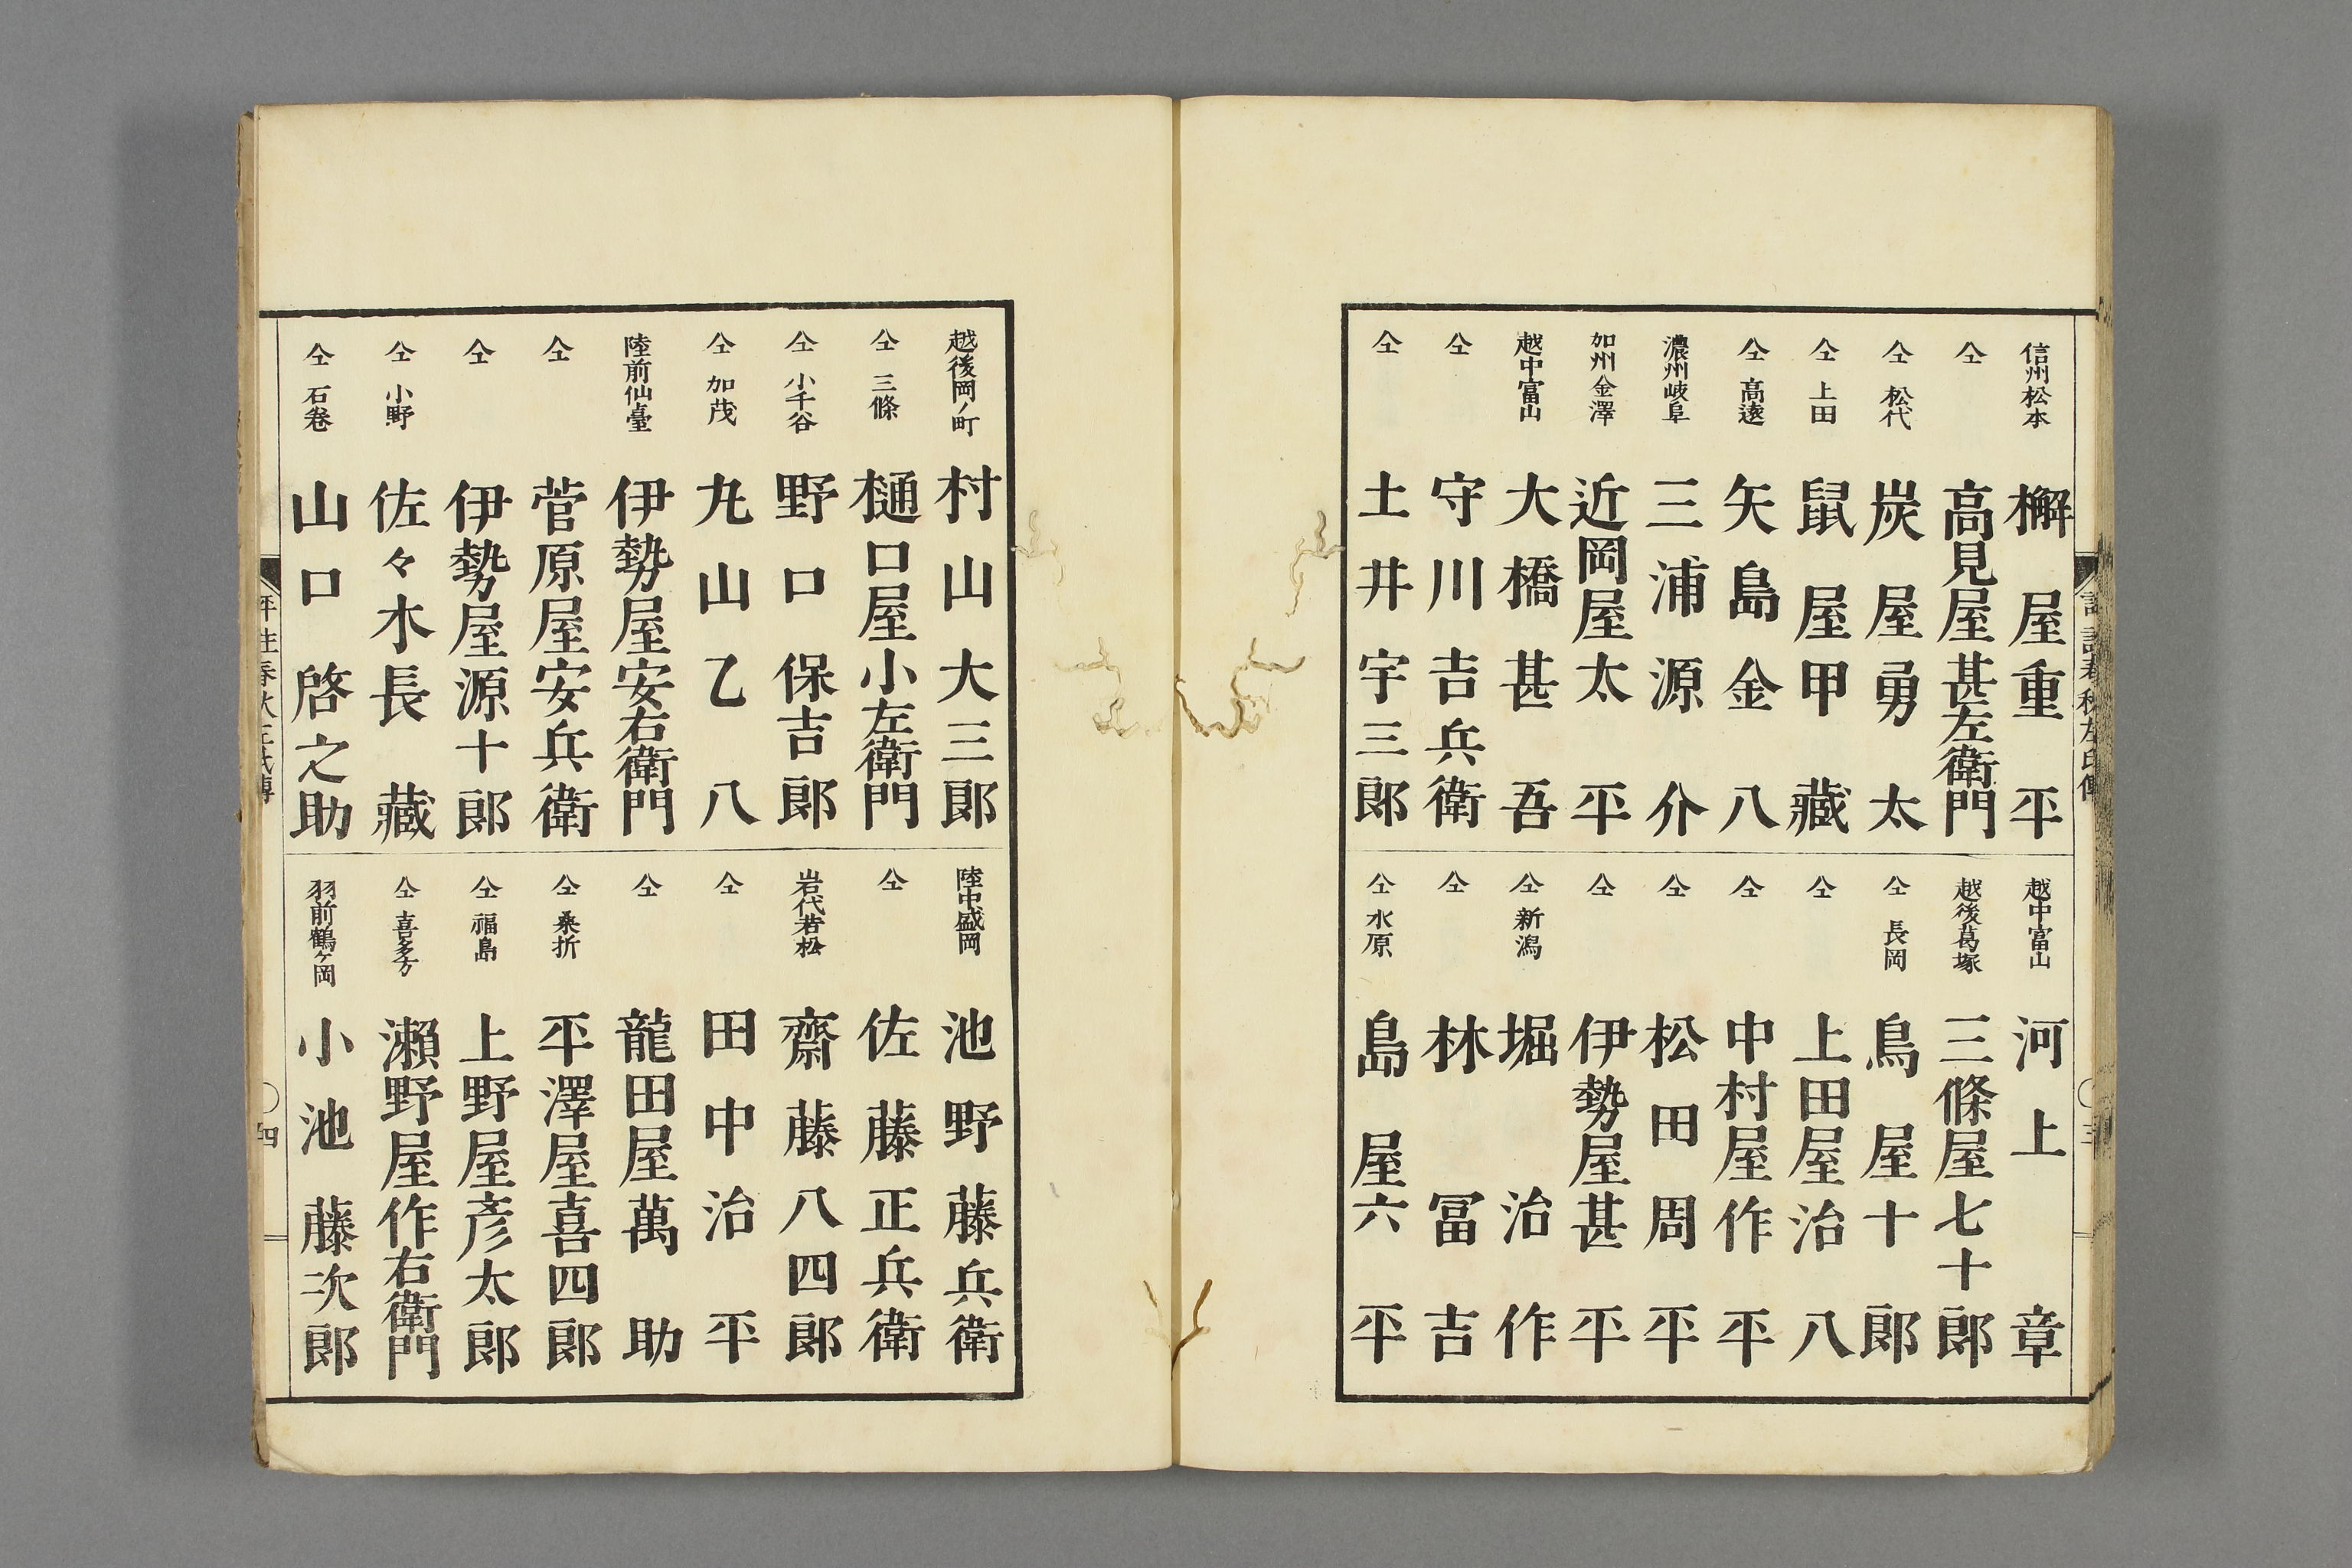 信州松本 檞屋重平
仝 高見屋甚左衛門
仝 松代 炭屋勇太
仝 上田 鼠屋甲藏
仝 高遠 矢島金八
濃州岐阜 三浦源介
加州金澤 近岡屋太平
越中富山 大橋甚吾
仝 守川吉兵衛
仝 土井宇三郎
越中富山 河上章
越後葛塚 三條屋七十郎
仝 長岡 鳥屋十郎
仝 上田屋治八
仝 中村屋作平
仝 松田周平
仝 伊勢屋甚平
仝 新潟 堀治作
仝 林冨吉
仝 水原 島屋六平
越後岡ノ町 村山大三郎
仝 三條 樋口屋小左衛門
仝 小千谷 野口保吉郎
仝 加茂 丸山乙八
陸前仙臺 伊勢屋安右衛門
仝 菅原屋安兵衛
仝 伊勢屋源十郎
仝 小野 佐々木長藏
仝 石巻 山口啓之助
陸中盛岡 池野藤兵衛
仝 佐藤正兵衛
岩代若松 齋藤八四郎
仝 田中治平
仝 龍田屋萬助
仝 桑折 平澤屋喜四郎
仝 福島 上野屋彦太郎
仝 喜多方 瀬野屋作右衛門
羽前鶴ヶ岡 小池藤次郎
春秋左氏傳
四